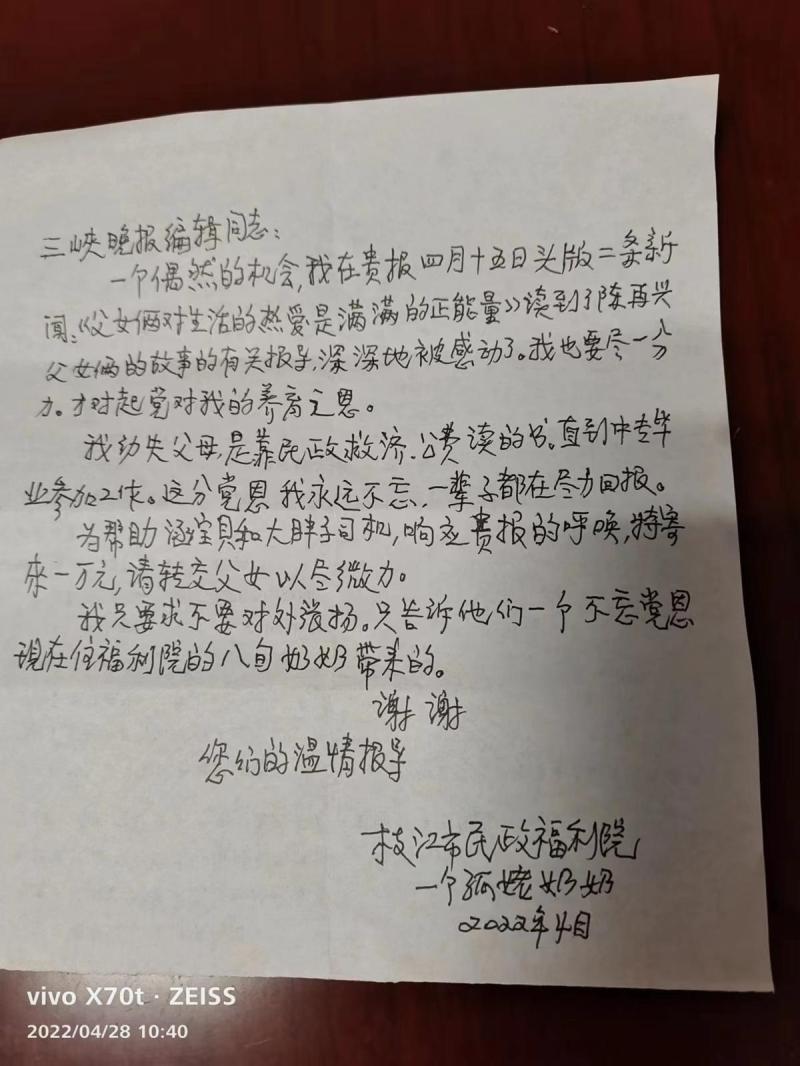 三峡晚报编辑同志：
一个偶然的机会，我在贵报四月十五日头版二条新
闻：《父女俩对生活的热爱是满满的正能量》读到了陈再兴
父女俩的故事的有关报导，深深地被感动了。我也要尽一分
力。才对起党对我的养育之恩。
我幼失父母，是靠民政救济．公费读的书。直到中专毕
业参加工作。这分党恩我永远不忘，一辈子都在尽力回报。
为帮助涵宝贝和大胖子司机，响应贵报的呼唤，特寄
来一万元，请转交父女以尽微力。
我只要求不要对外张扬。只告诉他们一个不忘党恩
现在住福利院的八旬奶奶带来的。
谢谢
您们的温情报导
枝江市民政福利院
一个孤姥奶奶
2022年4月
vivo X70t · ZEISS
2022/04/28 10:40